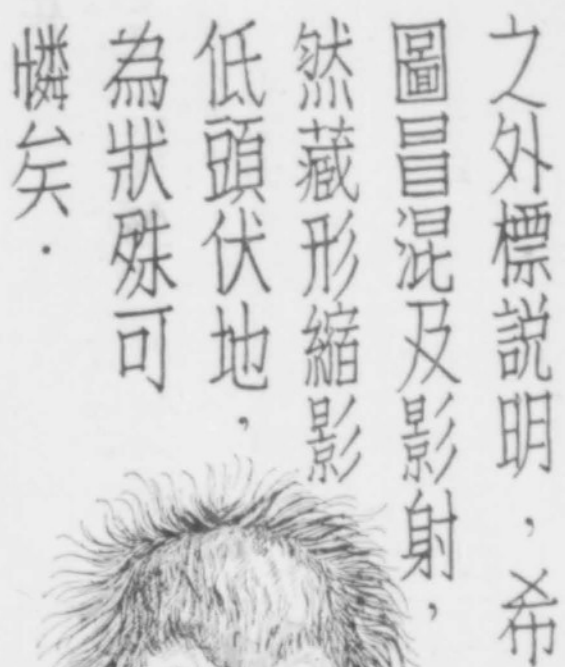 之外標説明，希
圖冒混及影射，
然藏形縮影
低頭伏地，
為狀殊可
憐矣．